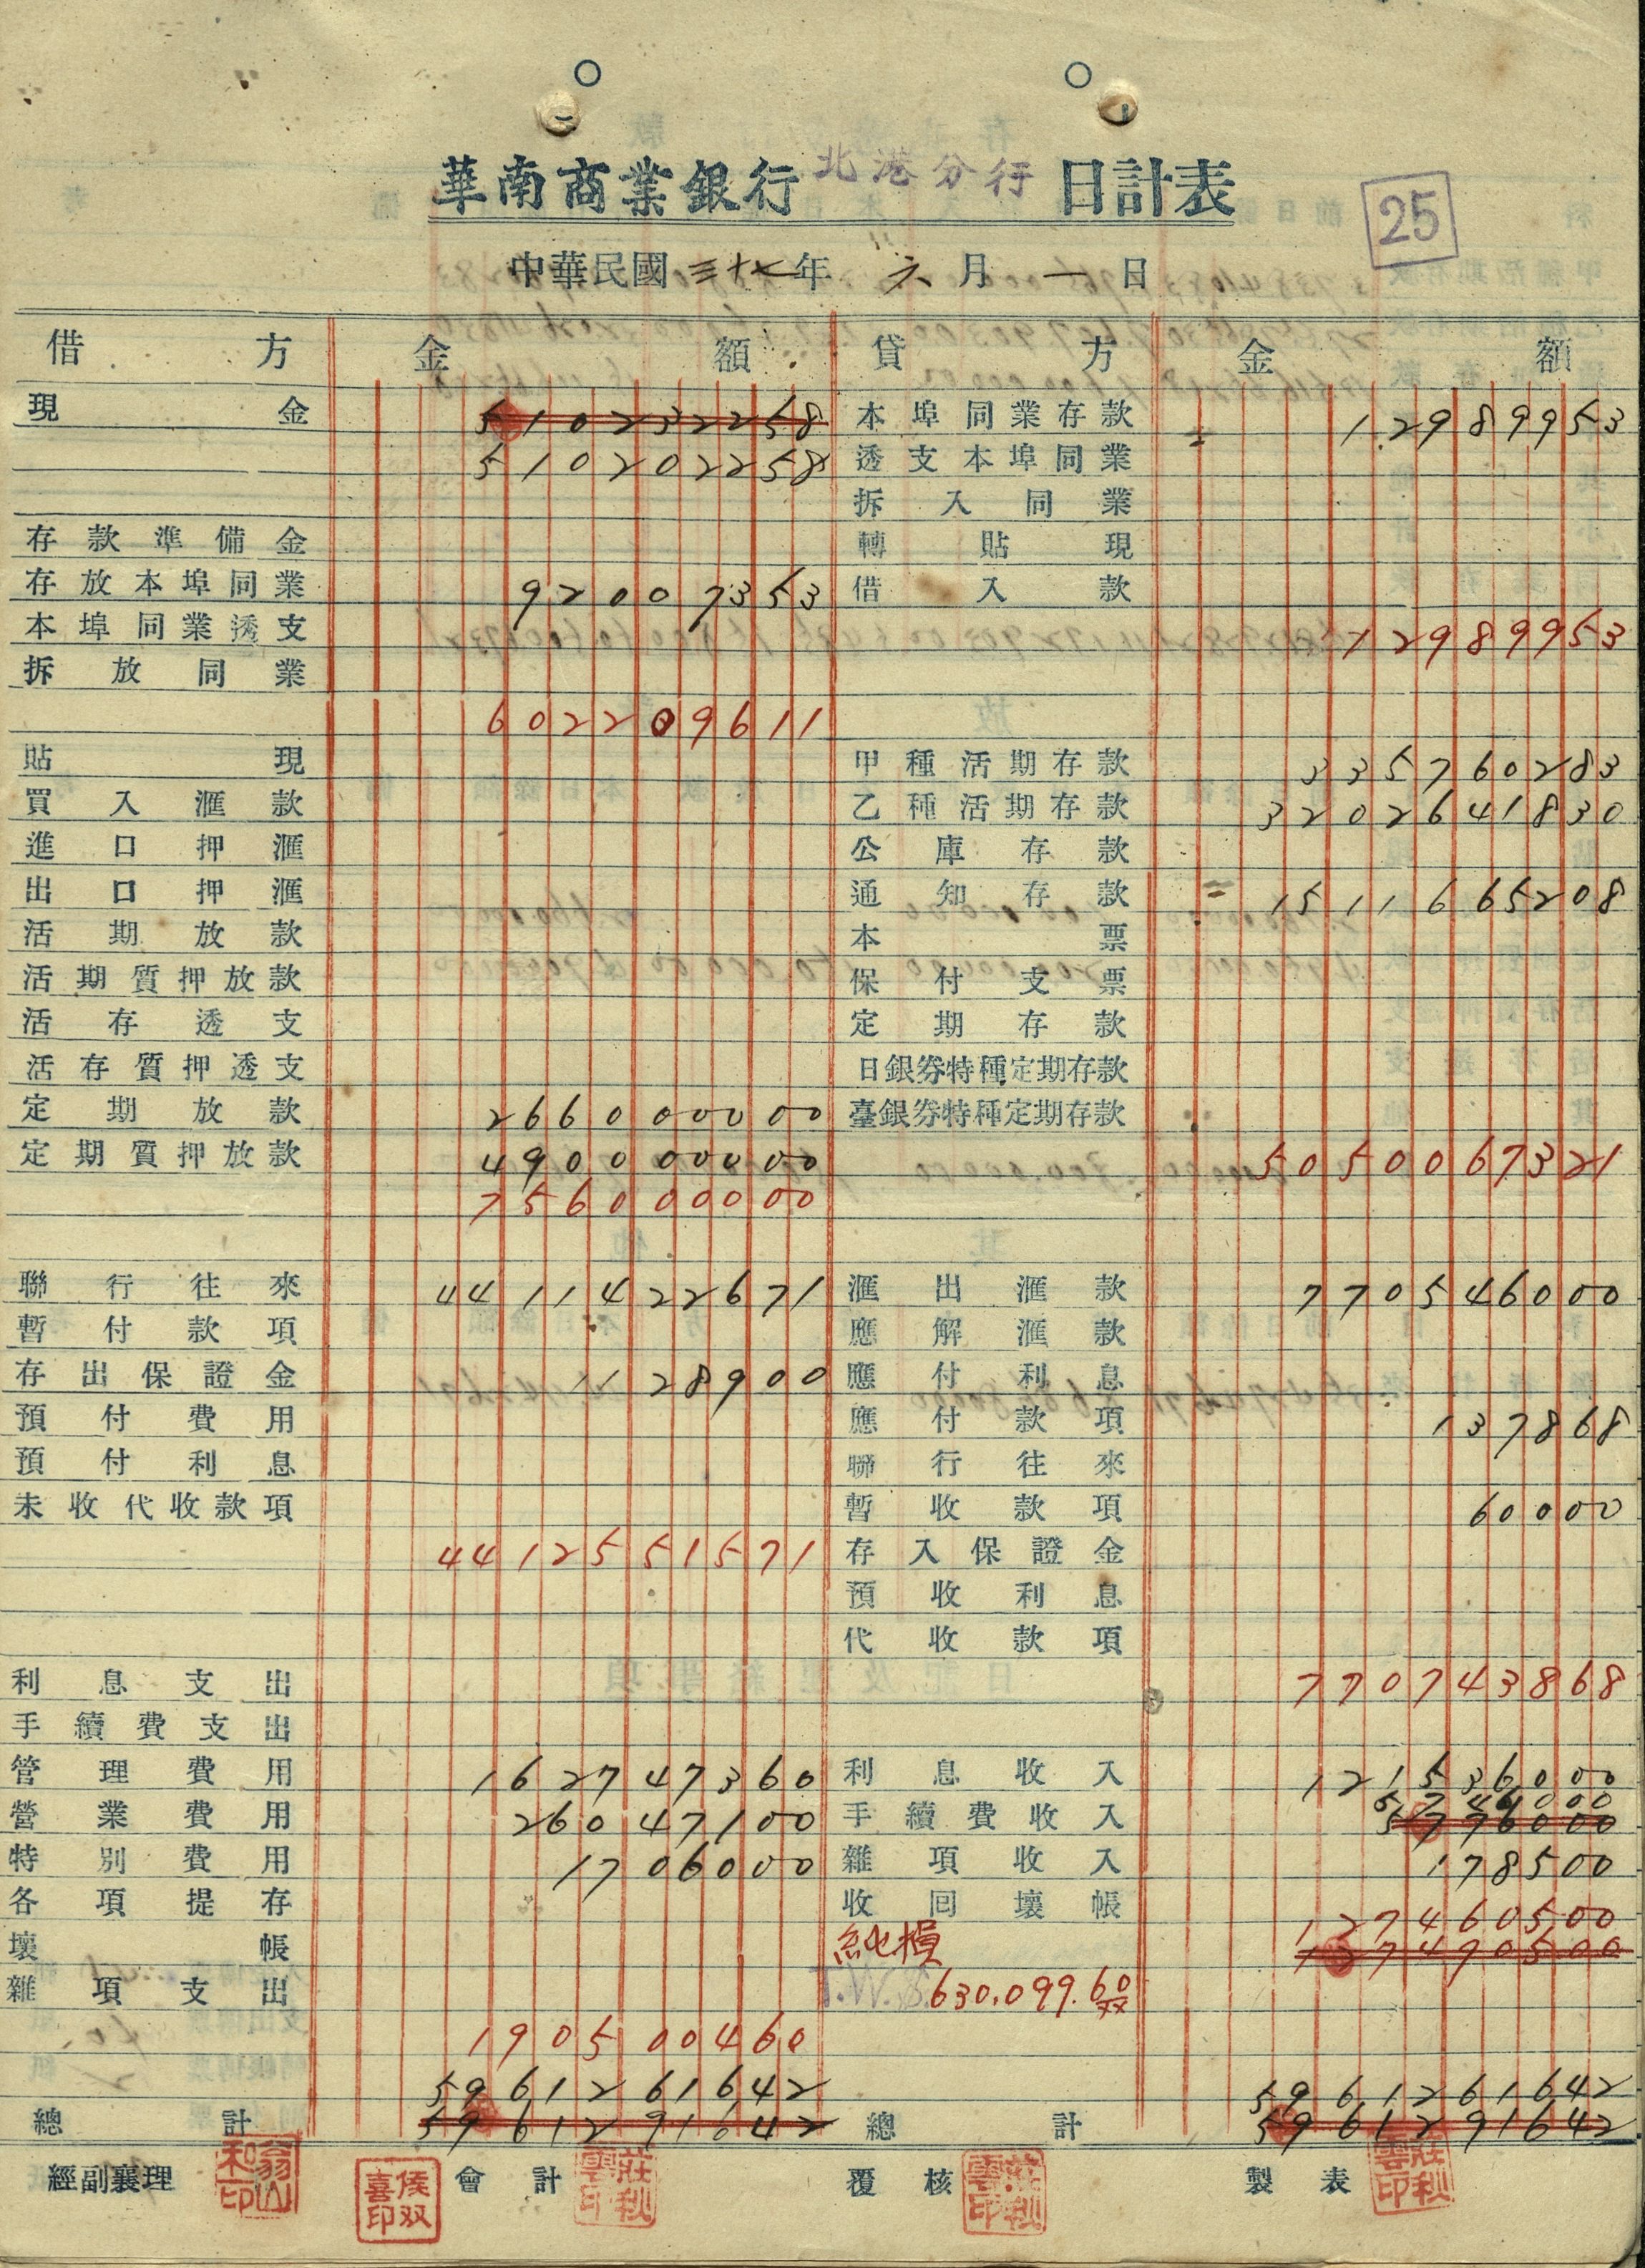 華南商業銀行 北港分行 日計表
25
中華民國 三十七 年 六 月 一 日
借方 金額 貸方 金額
現金 510232258 本埠同業存款 12989953
510202258 透支本埠同業
拆入同業
存款準備金 轉貼現
存放本埠同業 92007353 借入款
本埠同業透支 12989953
拆放同業
602209611
貼現 甲種活期存款 335760283
買入滙款 乙種活期存款 3202641830
進口押滙 公庫存款
出口押滙 通知存款 1511665208
活期放款 本票
活期質押放款 保付支票
活存透支 定期存款
活存質押透支 日銀劵特種定期存款
定期放款 266000000 臺銀劵特種定期存款
定期質押放款 490000000 5050067321
756000000
聯行往來 4411422671 滙出滙款 770546000
暫付款項 應解滙款
存出保證金 1128900 應付利息
預付費用 應付款項 137868
預付利息 聯行往來
未收代收款項 暫收款項 60000
4412551571 存入保證金
預收利息
代收款項
利息支出 770743868
手續費支出
管理費用 162747360 利息收入 121536000
5746000
營業費用 26047100 手續費收入 5776000
特別費用 1706000 雜項收入 178500
各項提存 收回壞帳 127460500
壞帳 純損 127490500
雜項支出 T.W.$ 630.099.60
190500460
5961261642 5961261642
總計 5961291642 總計 5961291642
經副襄理 會計 覆核 製表
侯双喜印 莊秋雲印 莊秋雲印 莊秋雲印